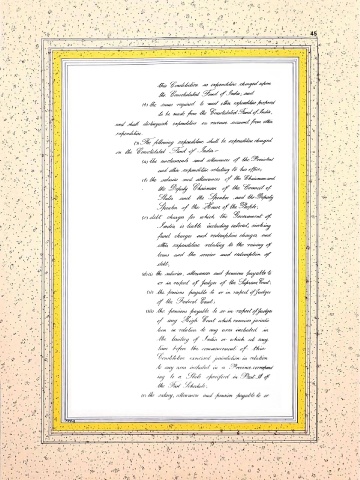 45
this Constitution as expenditure charged upon
the Consolidated Fund of India; and
(b) the sums required to meet other expenditure proposed
to be made from the Consolidated Fund of India,
and shall distinguish expenditure on revenue account from other
expenditure.
(3) The following expenditure shall be expenditure charged
on the Consolidated Fund of India—
(a) the emoluments and allowances of the President
and other expenditure relating to his office;
(b) the salaries and allowances of the Chairman and
the Deputy Chairman of the Council of
States and the Speaker and the Deputy
Speaker of the House of the People;
(c) debt charges for which the Government of
India is liable including interest, sinking
fund charges and redemption charges, and
other expenditure relating to the raising of
loans and the service and redemption of
debt;
(d)(i) the salaries, allowances and pensions payable to
or in respect of Judges of the Supreme Court;
(ii) the pensions payable to or in respect of Judges
of the Federal Court;
(iii) the pensions payable to or in respect of Judges
of any High Court which exercises jurisdic-
tion in relation to any area included in
the territory of India or which at any
time before the commencement of this
Constitution exercised jurisdiction in relation
to any area included in a Province correspond
ing to a State specified in Part A of
the First Schedule;
(e) the salary, allowances and pension payable to or